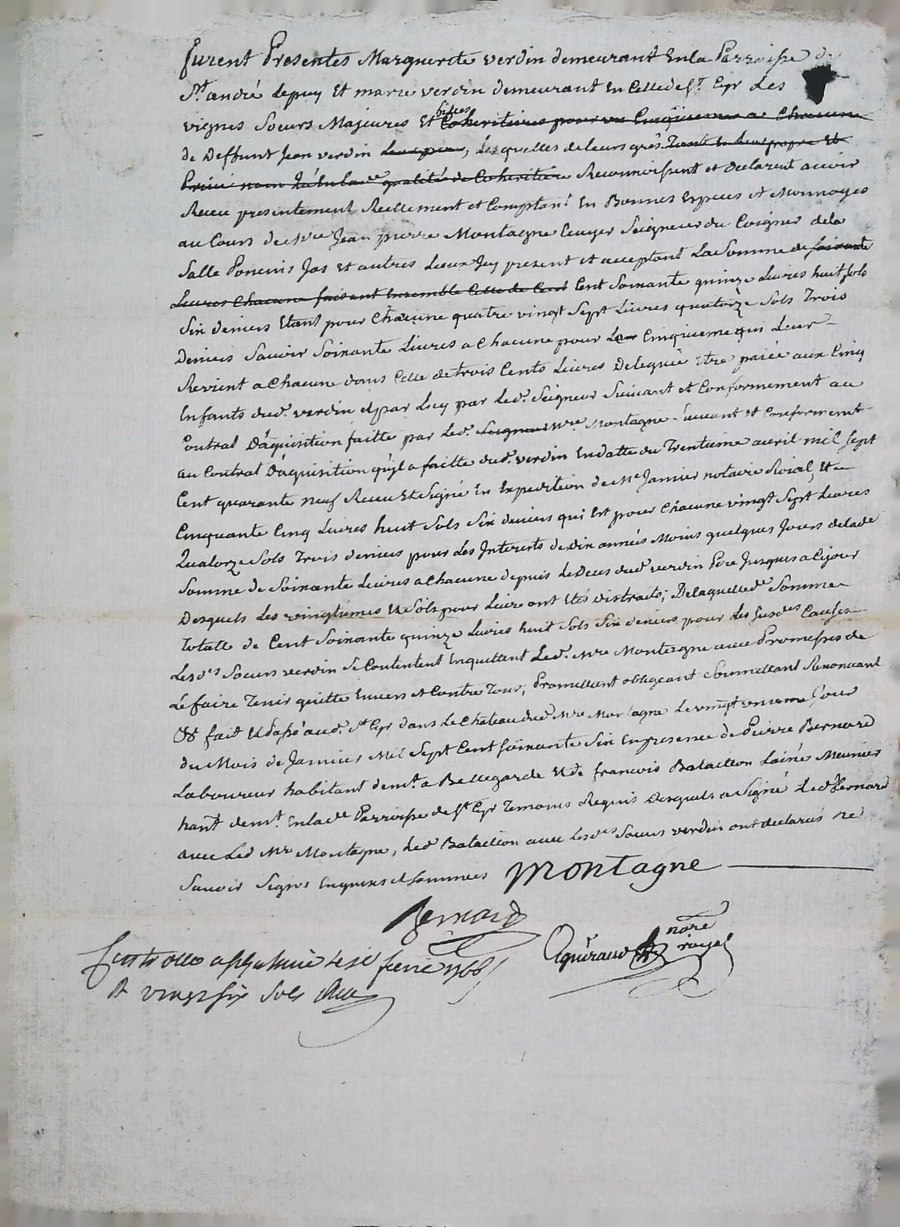 furent Presentes Marguerite verdin demeurant En la Parroisse de
St. andré le puy Et marie verdin demeurant En Celle de St. Cyr Les
vignes Soeurs Majeures Et filles Coheritieres pour un Cinquieme a Chacune
de Deffunt Jean verdin Leur pere, Lesquelles de leurs grés Tant En leur propre Et
Privé nom qu'En lade qualité de Coheritiere Reconnoissent et Declarent avoir
Receu presentement Reellement et Comptant En Bonnes Especes et Monnoyes
au Cours de Mre Jean pierre Montagne Ecuyer Seigneur du Poigner dela
Salle Poncins Jas Et autres Lieux Icy present et acceptant La Somme de soixante
Livres Chacune faisant Ensemble Celle de Cent Cent Soixante quinze Livres huit sols
Six deniers Etant pour Chacune quatre vingt Sept Livres quatorze Sols Trois
Deniers Savoir Soixante Livres a Chacune pour Leur Cinquieme qui Leur
Revient a Chacune dans Celle de trois Cents Livres Deleguée Etre paiée aux Cinq
Enfants dud. verdin par Luy par Led. Seigneur Suivant et Conformement au
Contrat D'aquisition faitte par Led. Seigneur Mre Montagne Suivant et Conformement
au Contrat D'aquisition qu'yl a faitte dud. verdin En datte du Trentieme avril mil Sept
Cent quarante neuf Receu Et Signé En Expedition de Me Janvier notaire Roial, Et
Cinquante Cinq Livres huit Sols Six deniers qui Est pour Chacune vingt Sept Livres
Quatorze Sols Trois deniers pour Les Interets de Dix années Moins quelques Jours de lade
Somme de Soixante Livres a Chacune depuis Le Deces dud. verdin Pere Jusques a Cejour
Desquels Les vingtiemes Et Sols pour Livre ont Etés distraits; De laquelle de Somme
Totalle de Cent Soixante quinze Livres huit Sols Six deniers pour Les Susdes Causes
Lesdes Soeurs verdin Se Contentent Enquittent Led. Mre Montagne avec Promesses de
Le faire Tenir quitte Envers et Contre Tous, Promettant obligeant Soumettant Renoncant
&c fait Et passé aud. St. Cyr dans Le Chateau dud. Mre Montagne Le vingt unieme Jour
du Mois de Janvier Mil Sept Cent Soixante Six En presence de Pierre Bernard
Laboureur habitant demt. a Bellegarde Et de francois Bataillon Lainé Meunier
hant. demt. En lade Parroisse de St. Cyr Temoins Requis Desquels a Signé Led. Bernard
avec Led. Mre Montagne, Led. Bataillon avec Lesdes Soeurs verdin ont declarés ne
Savoir Signer Enquises et Sommées Montagne
Bernard
nore
royal
Controllé a
R vingt six sols